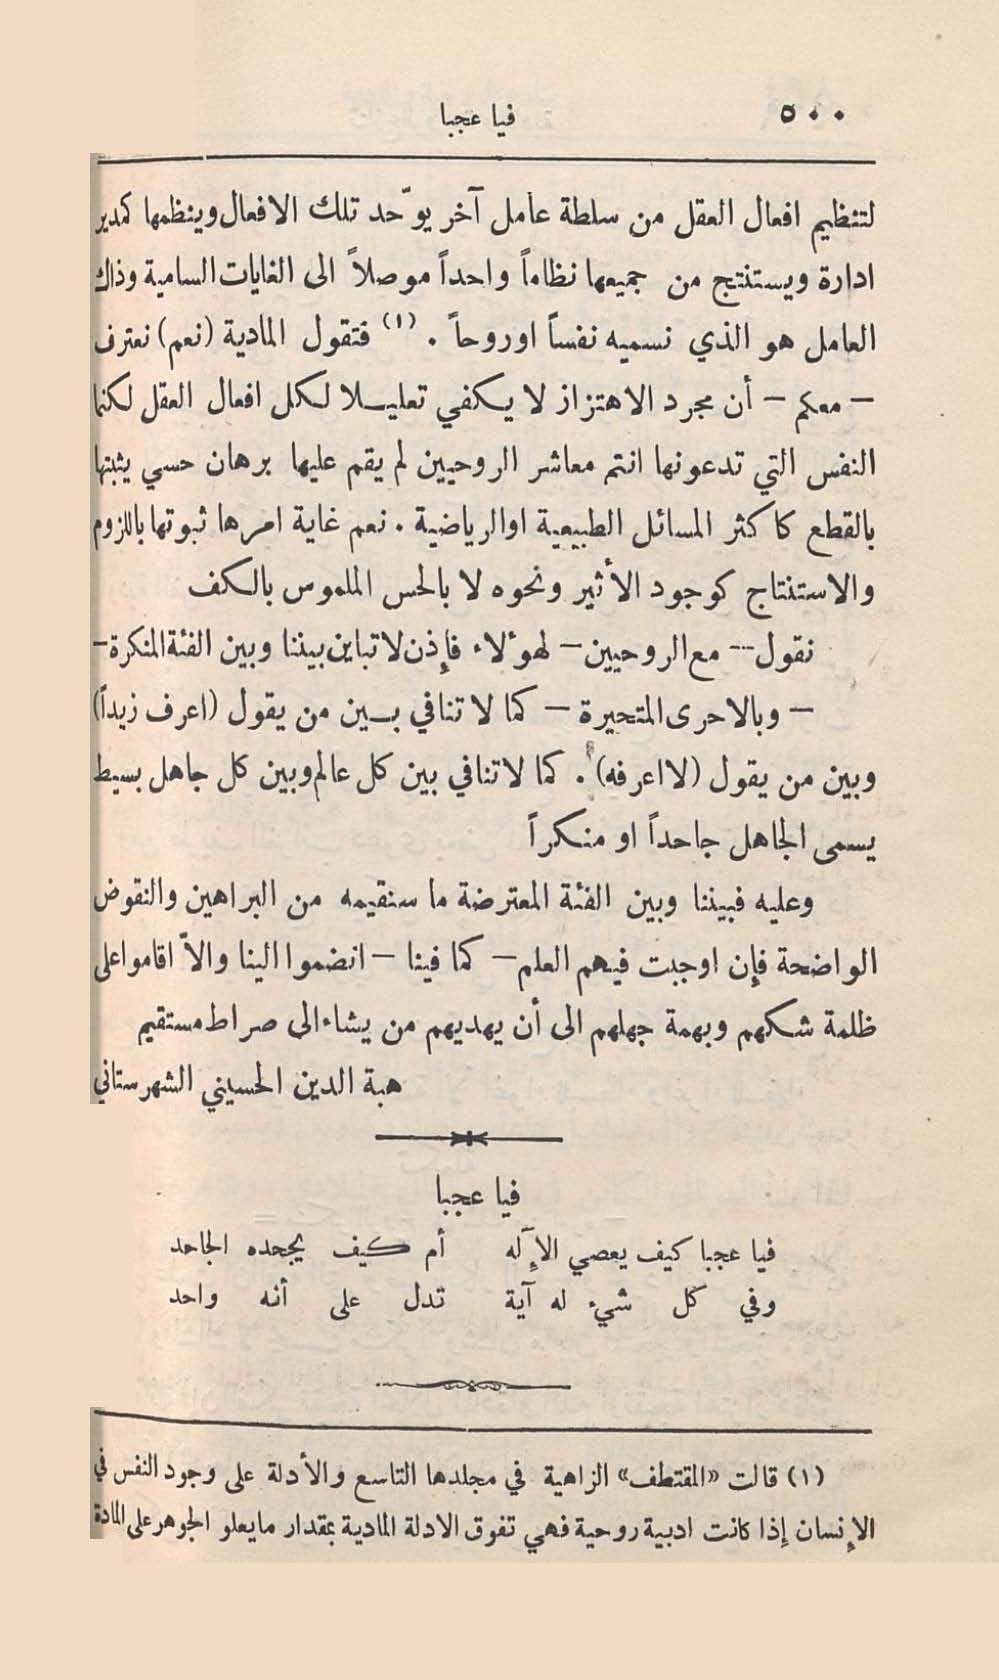 ٥٠٠
فيا عجبا
لتنظيم افعال العقل من سلطة عامل آخر يوّحد تلك الافعال وينظمها كمدير
ادارة ويستنتج من جميعها نظاماً واحداً موصلاً الى الغايات السامية وذاك
العامل هو الذي نسميه نفساً او روحاً . (١) فتقول المادية (نعم) نعترف
– معكم – أن مجرد الاهتزاز لا يكفي تعليلا لكل افعال العقل لكنما
النفس التي تدعونها انتم معاشر الروحيين لم يقم عليها برهان حسي يثبتها
بالقطع كاكثر المسائل الطبيعية او الرياضية . نعم غاية امرها ثبوتها باللزوم
والاستنتاج كوجود الأثير ونحوه لا بالحس الملموس بالكف
نقول – مع الروحيين – لهؤلاء فإذن لا تباين بيننا وبين الفئة المنكرة –
– وبالاحرى المتحيرة – كما لا تنافي بين من يقول (اعرف زيداً)
وبين من يقول (لا اعرفه) . كما لا تنافي بين كل عالم وبين كل جاهل بسيط
يسمى الجاهل جاحداً او منكراً
وعليه فبيننا وبين الفئة المعترضة ما سنقيمه من البراهين والنقوض
الواضحة فإن اوجبت فيهم العلم – كما فينا – انضموا الينا والاّ اقاموا على
ظلمة شكهم وبهمة جهلهم الى أن يهديهم من يشاء الى صراط مستقيم
هبة الدين الحسيني الشهرستاني
فيا عجبا
فيا عجبا كيف يعصي الإٓله أم كيف يجحده الجاحد
وفي كل شيء له آية تدل على أنه واحد
(١) قالت «المقتطف» الزاهية في مجلدها التاسع والأدلة على وجود النفس في
الإنسان إذا كانت ادبية روحية فهي تفوق الادلة المادية بمقدار ما يعلو الجوهر على المادة